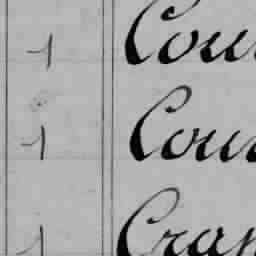 1 Cou
1 Cou
1 Cran